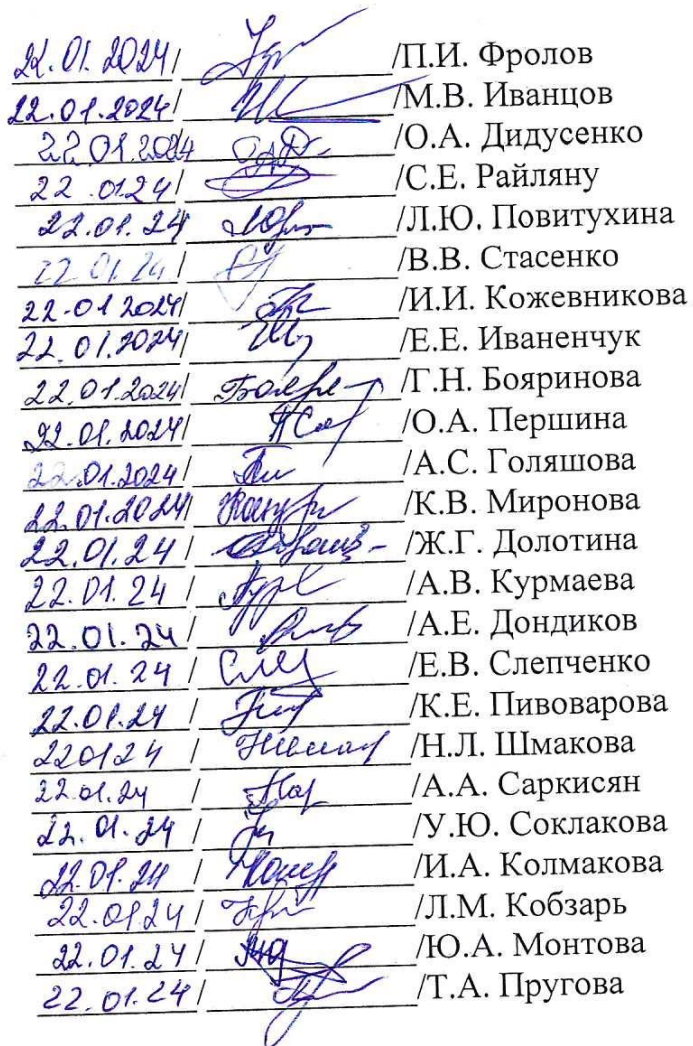 22.01.2024/ /П.И. Фролов
22.01.2024/ /М.В. Иванцов
22 01.2024 /О.А. Дидусенко
22 .0124/ /С.Е. Райляну
22.01.24/ /Л.Ю. Повитухина
22 01.24 / /В.В. Стасенко
22.01 2024/ /И.И. Кожевникова
22.01.2024/ /Е.Е. Иваненчук
22.01.2024/ /Г.Н. Бояринова
22.01.2024/ /О.А. Першина
22.01.2024/ /А.С. Голяшова
22.01.2024/ /К.В. Миронова
22.01.24 / /Ж.Г. Долотина
22.01.24 / /А.В. Курмаева
22.01.24 / /А.Е. Дондиков
22.01.24 / /Е.В. Слепченко
22.01.24 / /К.Е. Пивоварова
220124 / /Н.Л. Шмакова
22.01.24 / /А.А. Саркисян
22.01.24 / /У.Ю. Соклакова
22.01.24 / /И.А. Колмакова
22.0124 / /Л.М. Кобзарь
22.01.24 / /Ю.А. Монтова
22.01.24 / /Т.А. Пругова